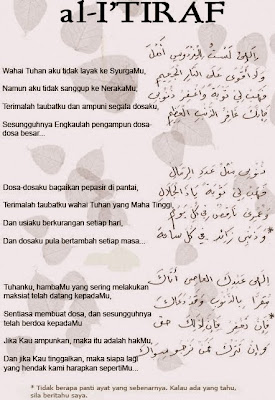 al-I'TIRAF
إلهي لست للفردوس أهلا
Wahai Tuhan aku tidak layak ke SyurgaMu,
ولا أقوى على النار الجحيم
Namun aku tidak sanggup ke NerakaMu,
فهب لي توبة واغفر ذنوبي
Terimalah taubatku dan ampuni segala dosaku,
Sesungguhnya Engkaulah pengampun dosa-
dosa besar...
ذنوبي مثل عدد الرمال
Dosa-dosaku bagaikan pepasir di pantai,
فهب لي توبة يا ذا الجلال
Terimalah taubatku wahai Tuhan yang Maha Tinggi,
وعمري ناقص في كل يوم
Dan usiaku berkurangan setiap hari,
وذنبي زائد
Dan dosaku pula bertambah setiap masa...
إلهي عبدك العاصي أتاك
Tuhanku, hambaMu yang sering melakukan
maksiat telah datang kepadaMu,
مقرا بالذنوب وقد دعاك
Sentiasa membuat dosa, dan sesungguhnya
telah berdoa kepadaMu
Jika Kau ampunkan, maka itu adalah hakMu,
Dan jika Kau tinggalkan, maka siapa lagi
yang hendak kami harapkan sepertiMu...
* Tidak berapa pasti ayat yang sebenarnya. Kalau ada yang tahu,
sila beritahu saya.